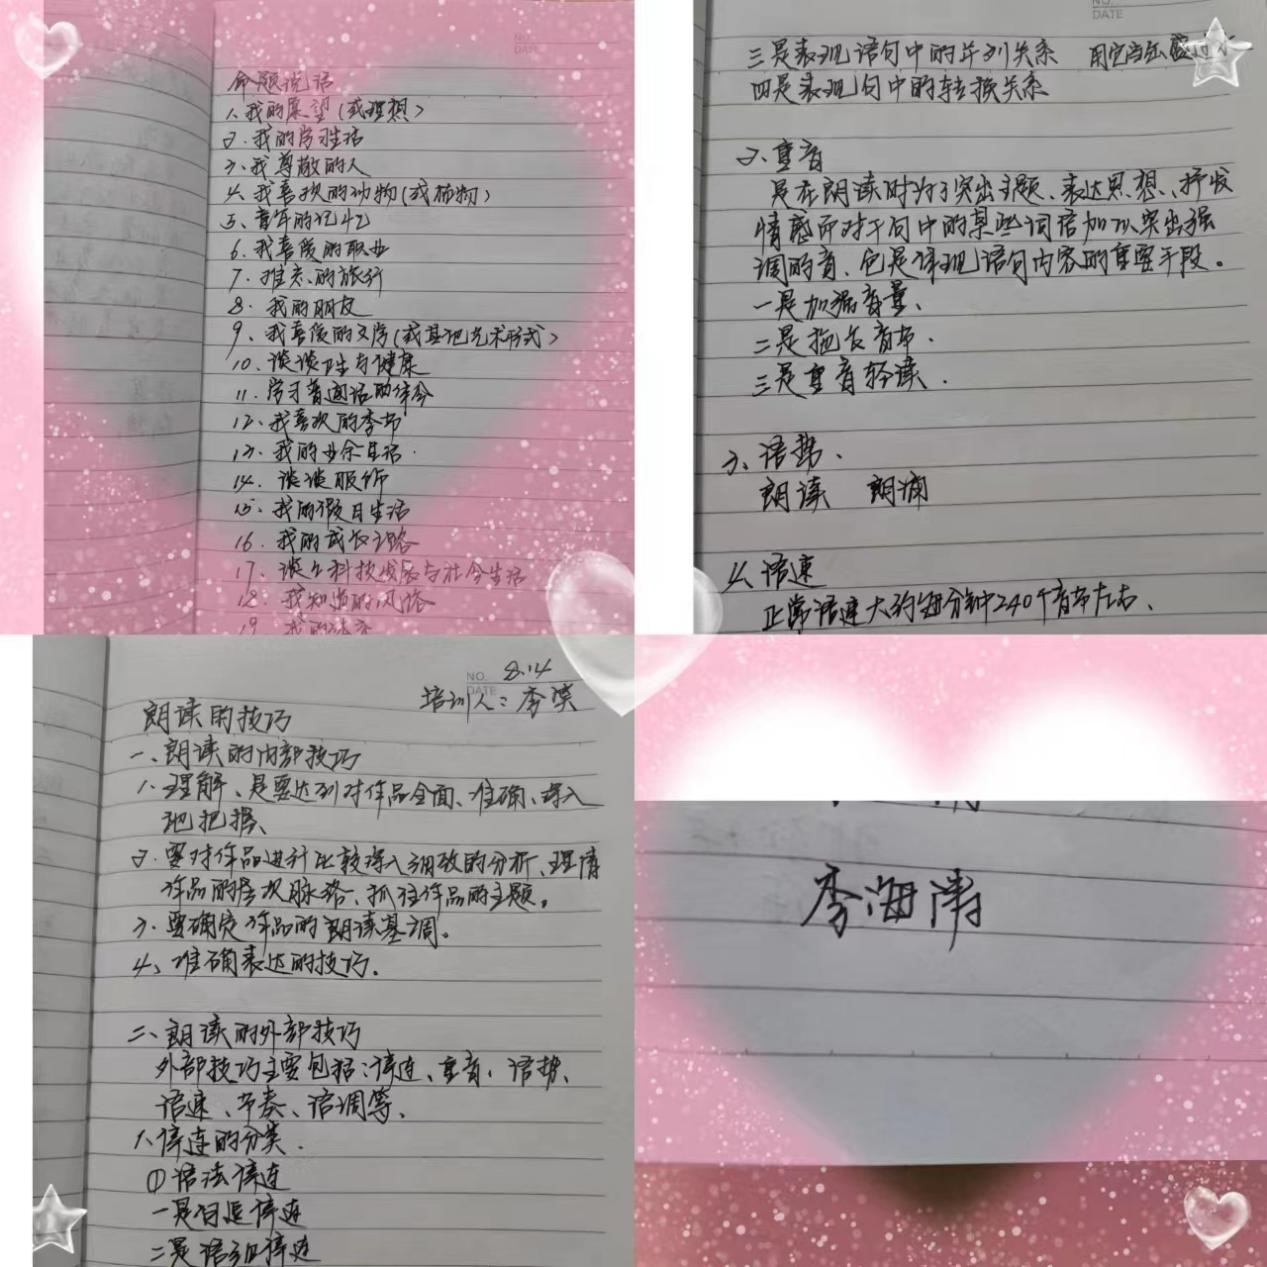 NO.
DATE
命题说话
1.我的愿望(或理想)
2.我的学习生活
3.我尊敬的人
4.我喜欢的动物(或植物)
5.童年的记忆
6.我喜爱的职业
7.难忘的旅行
8.我的朋友
9.我喜爱的文学(或其他艺术形式)
10.谈谈卫生与健康
11.学习普通话的体会
12.我喜欢的季节
13.我的业余生活.
14.谈谈服饰
15.我的假日生活
16.我的成长之路
17.谈谈科技发展与社会生活
18.我知道的风俗
19.我的
NO.
DATE
三是表现语句中的并列关系
四是表现句中的转换关系
2.重音
是在朗读时为了突出主题、表达思想、抒发
情感而对于句中的某些词语加以突出强
调的音、它是体现语句内容的重要手段。
一是加强音量、
二是拖长音节.
三是重音轻读.
3、语势、
朗读 朗诵
4、语速
正常语速大约每分钟240个音节左右、
NO. 8.14
DATE
培训人:李
朗读的技巧
一、朗读的内部技巧
1.理解、是要达到对作品全面、准确、深入
地把握、
2.要对作品进行比较深入细致的分析、理清
作品的层次脉络、抓住作品的主题。
3.要确定作品的朗读基调。
4、准确表达的技巧.
二、朗读的外部技巧
外部技巧主要包括:停连、重音、语势、
语速、节奏、语调等、
1.停连的分类.
①语法停连
一是句逗停连
二是语组停连
李海涛